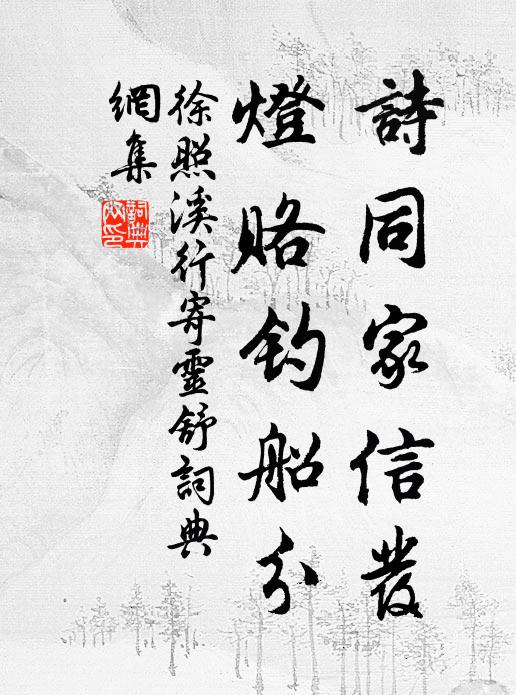 詩同家信發
燈賂钓船分
徐照溪行寄靈舒詞典
網集